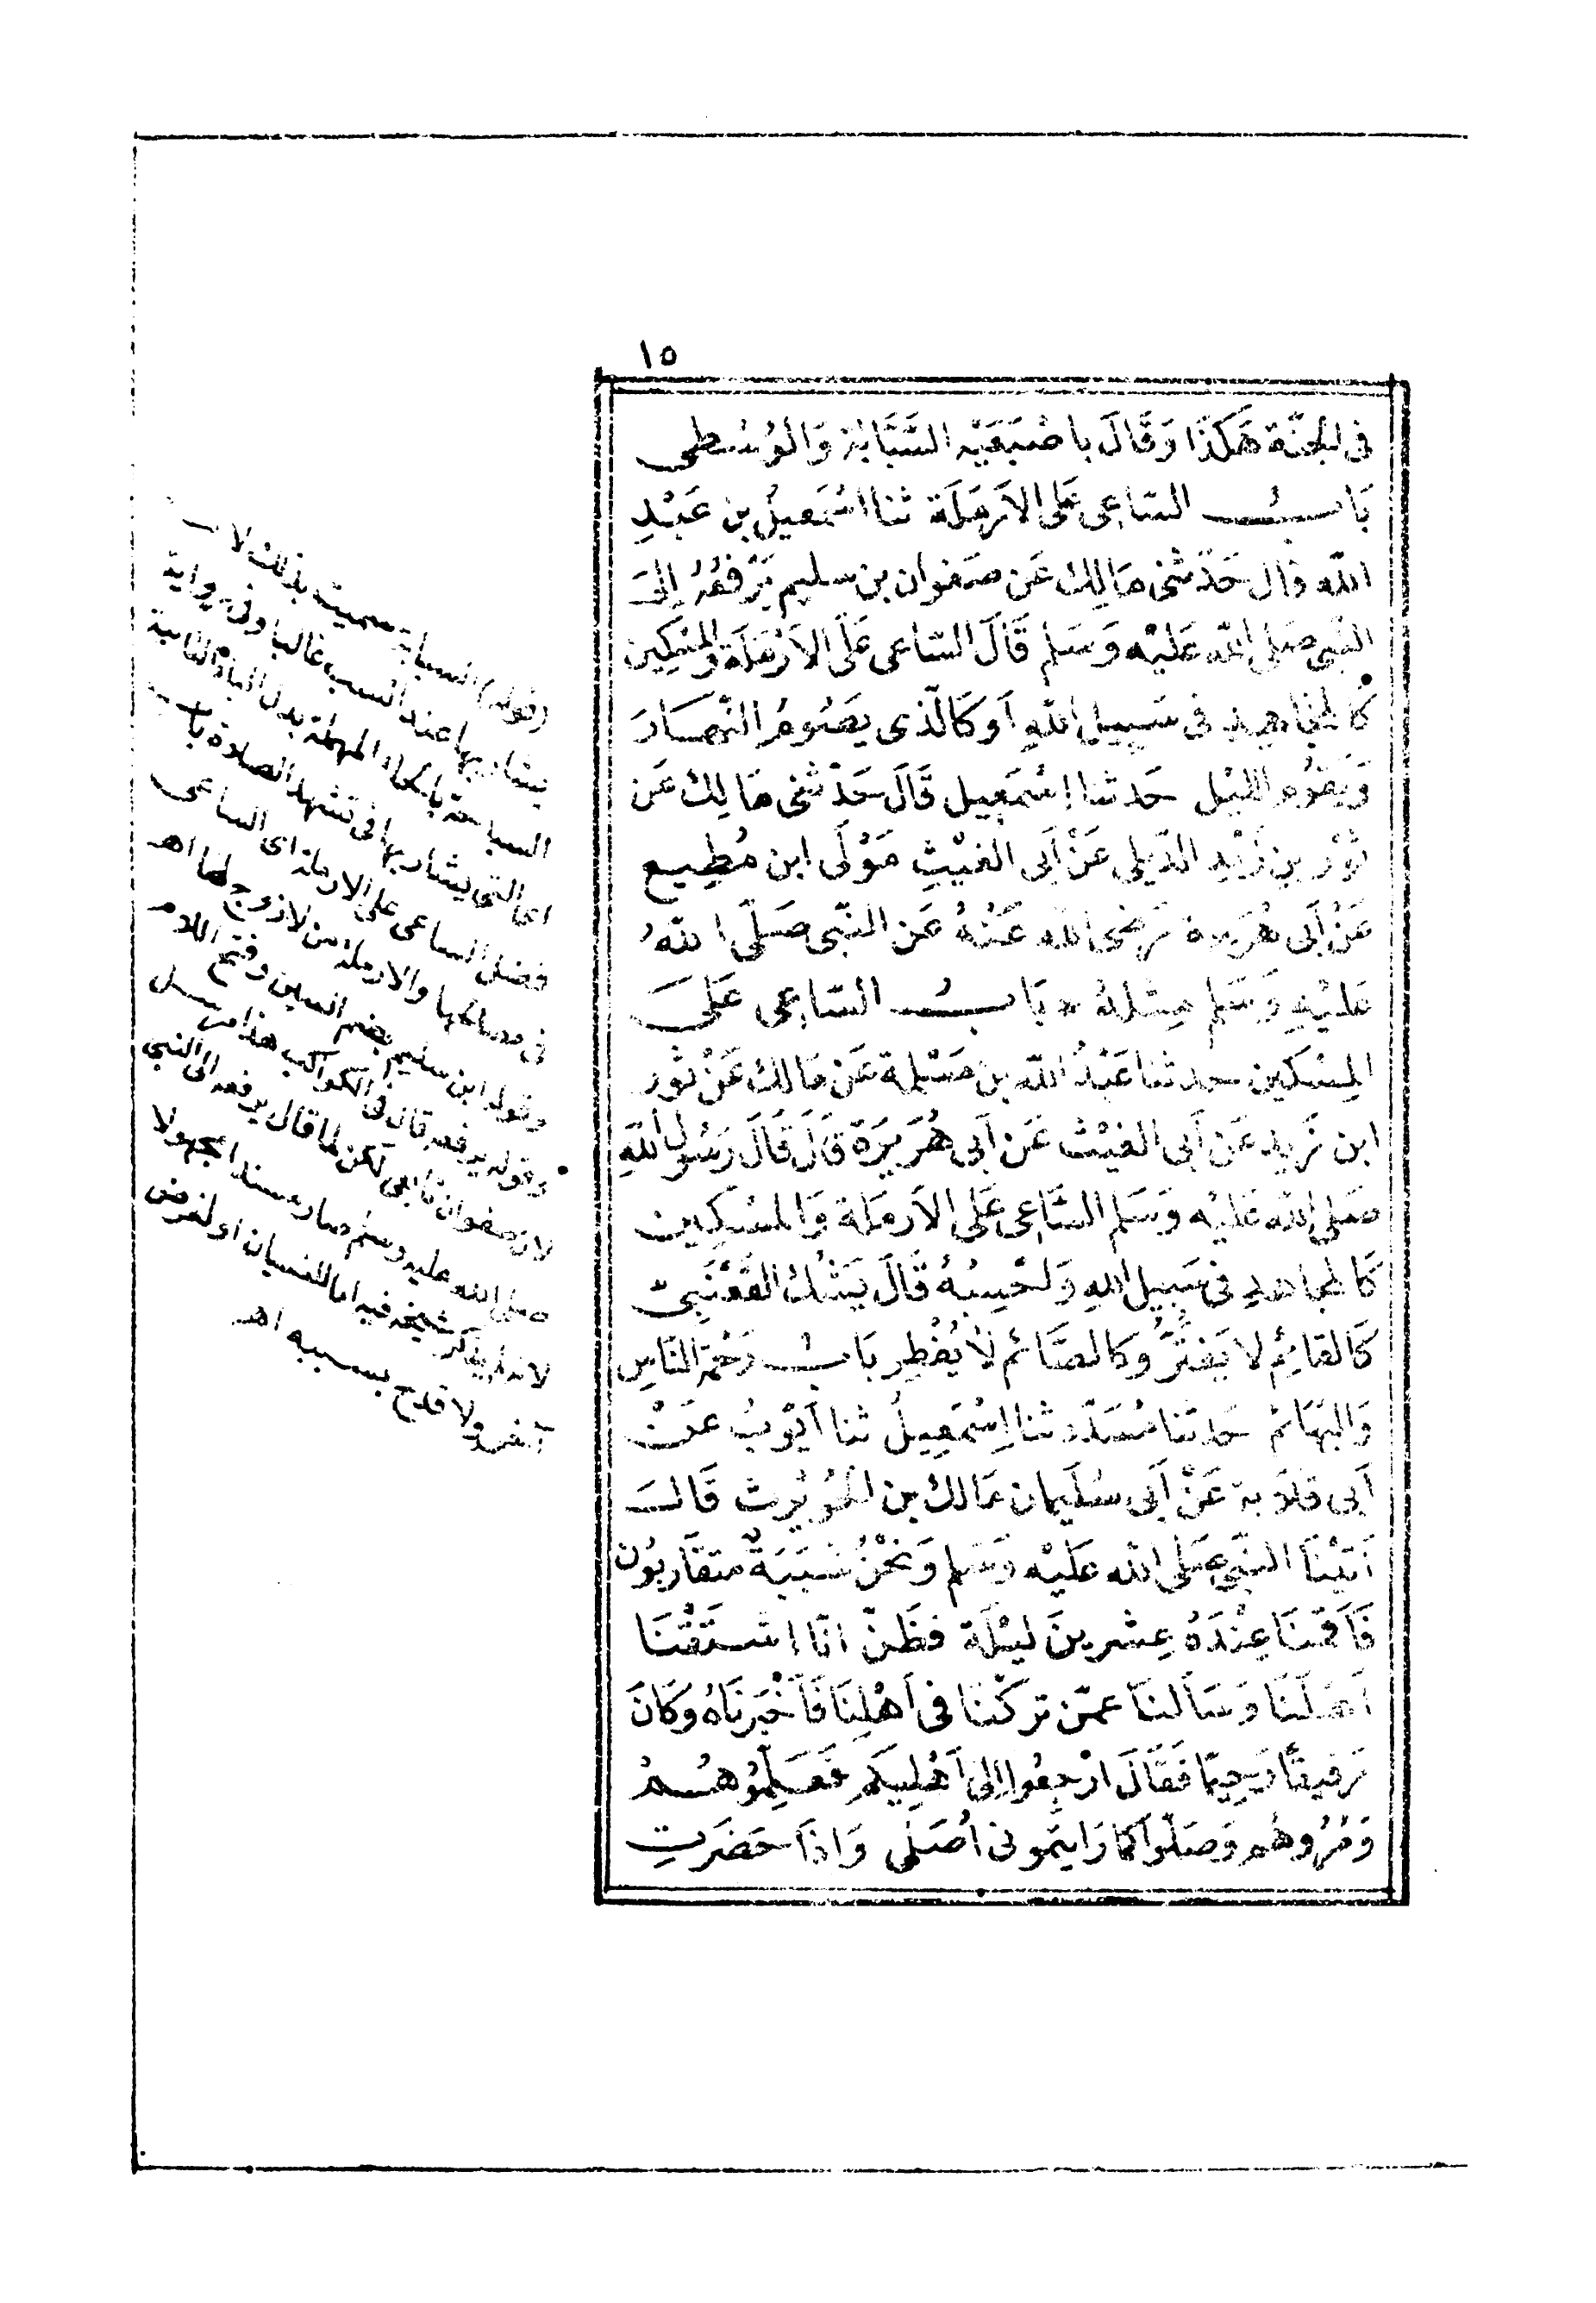 ١٥
فى الجنّة هَكَذَا وَقَالَ باصْبَعَيْه السَّبَّابَة وَالوُسْطى
بَابُ السّاعِى عَلى الاَرْمَلَة ثنا اسْمَعيلُ بن عَبْدِ
الله قال حَدّثنى مَالِك عَن صَفوان بن سليم يَرْفعُهُ إلَى
النَّبِى صَلى الله عَلَيْه وَسَلم قَالَ السّاعِى عَلَى الاَرْمَلَة وَالمِسْكِين
كَالمجَاهِدِ فى سَبِيلِ اللهِ اَو كَالّذى يَصُومُ النَّهَارَ
وَيَقُومُ الليْل حَدثنا إسْمَعِيل قَالَ حَدّثنى مَالِك عَن
ثَوْر بن زَيْد الدّيلى عَنْ اَبى الغيْثِ مَوْلَى ابن مُطِيع
عَنْ اَبى هُرَيرة رَضِىَ الله عَنْهُ عَن النّبى صَلَّى اللهُ
عَلَيْهِ وَسَلم مِثلهُ بَابُ السّاعِى عَلَى
المِسْكين حدثنا عَبْدُ الله بن مَسْلمة عَن مَالك عَنْ ثور
ابن زَيد عَن اَبى الغيْث عَن اَبى هُرَيرَة قَالَ قَالَ رَسُول اللهِ
صَلى الله عَليْه وَسَلم السَّاعِى عَلى الاَرمَلة وَالمسْكِين
كَالمجاهدِ فى سَبيل اللهِ وَاحْسِبُهُ قَالَ يَشُكُ القَعْنَبىّ
كَالقائِم لا يَفتُرُ وَكالصَّائم لاَ يُفْطِر بَابُ رَحْمَة النَّاسِ
وَالبَهَائم حَدثنا مُسَدّد ثنا إسْمَعِيلُ ثنا اَيّوبُ عَنْ
اَبى قلاَبة عَنْ اَبى سُلَيمان مَالك بن الحُوَيْرث قَالَ
اَتَيْنَا النَّبِى صَلى الله عَلَيْه وَسَلم وَنَحْنُ شَبَبَةٌ متقَاربُون
فَاَقَمْنَا عِنْدَهُ عِشرينَ ليْلَة فظَنّ انّا اشتَقْنَا
اَهْلَنَا وَسَاَلنَا عمّن تركْنَا فى اَهْلِنَا فَاَخْبَرنَاهُ وَكَانَ
رَفيقًا رَحِيمًا فَقَالَ ارْجِعُوا اِلى اَهْلِيكم فَعَلِّمُوهُمْ
وَمُرُوهُم وَصَلُّوا كما رَايتمونى اُصَلّى وَاذَا حَضَرَتِ
(قوله) السبابة سميت بذلك لانـ
يشار بها عند السب غالبا وفى رواية
السباحة بالحاء المهملة بدل الباء الثانية
اى التى يشار بها فى تشهد الصلاة باب
فضل الساعى على الارملة اى الساعى
فى مصالحها والارملة من لا زوج لها اهـ
وقوله ابن سليم بضم السين وفتح اللام
وقوله يرفعه قال فى الكواكب هذا مرسل
لان صفوان تابعى لكن لما قال يرفعه الى النبى
صلى الله عليه وسلم صار مسندا مجهولا
لانه لم يذكر شيخه فيه اما للنسيان او لغرض
آخر ولا قدح بسببه اهـ